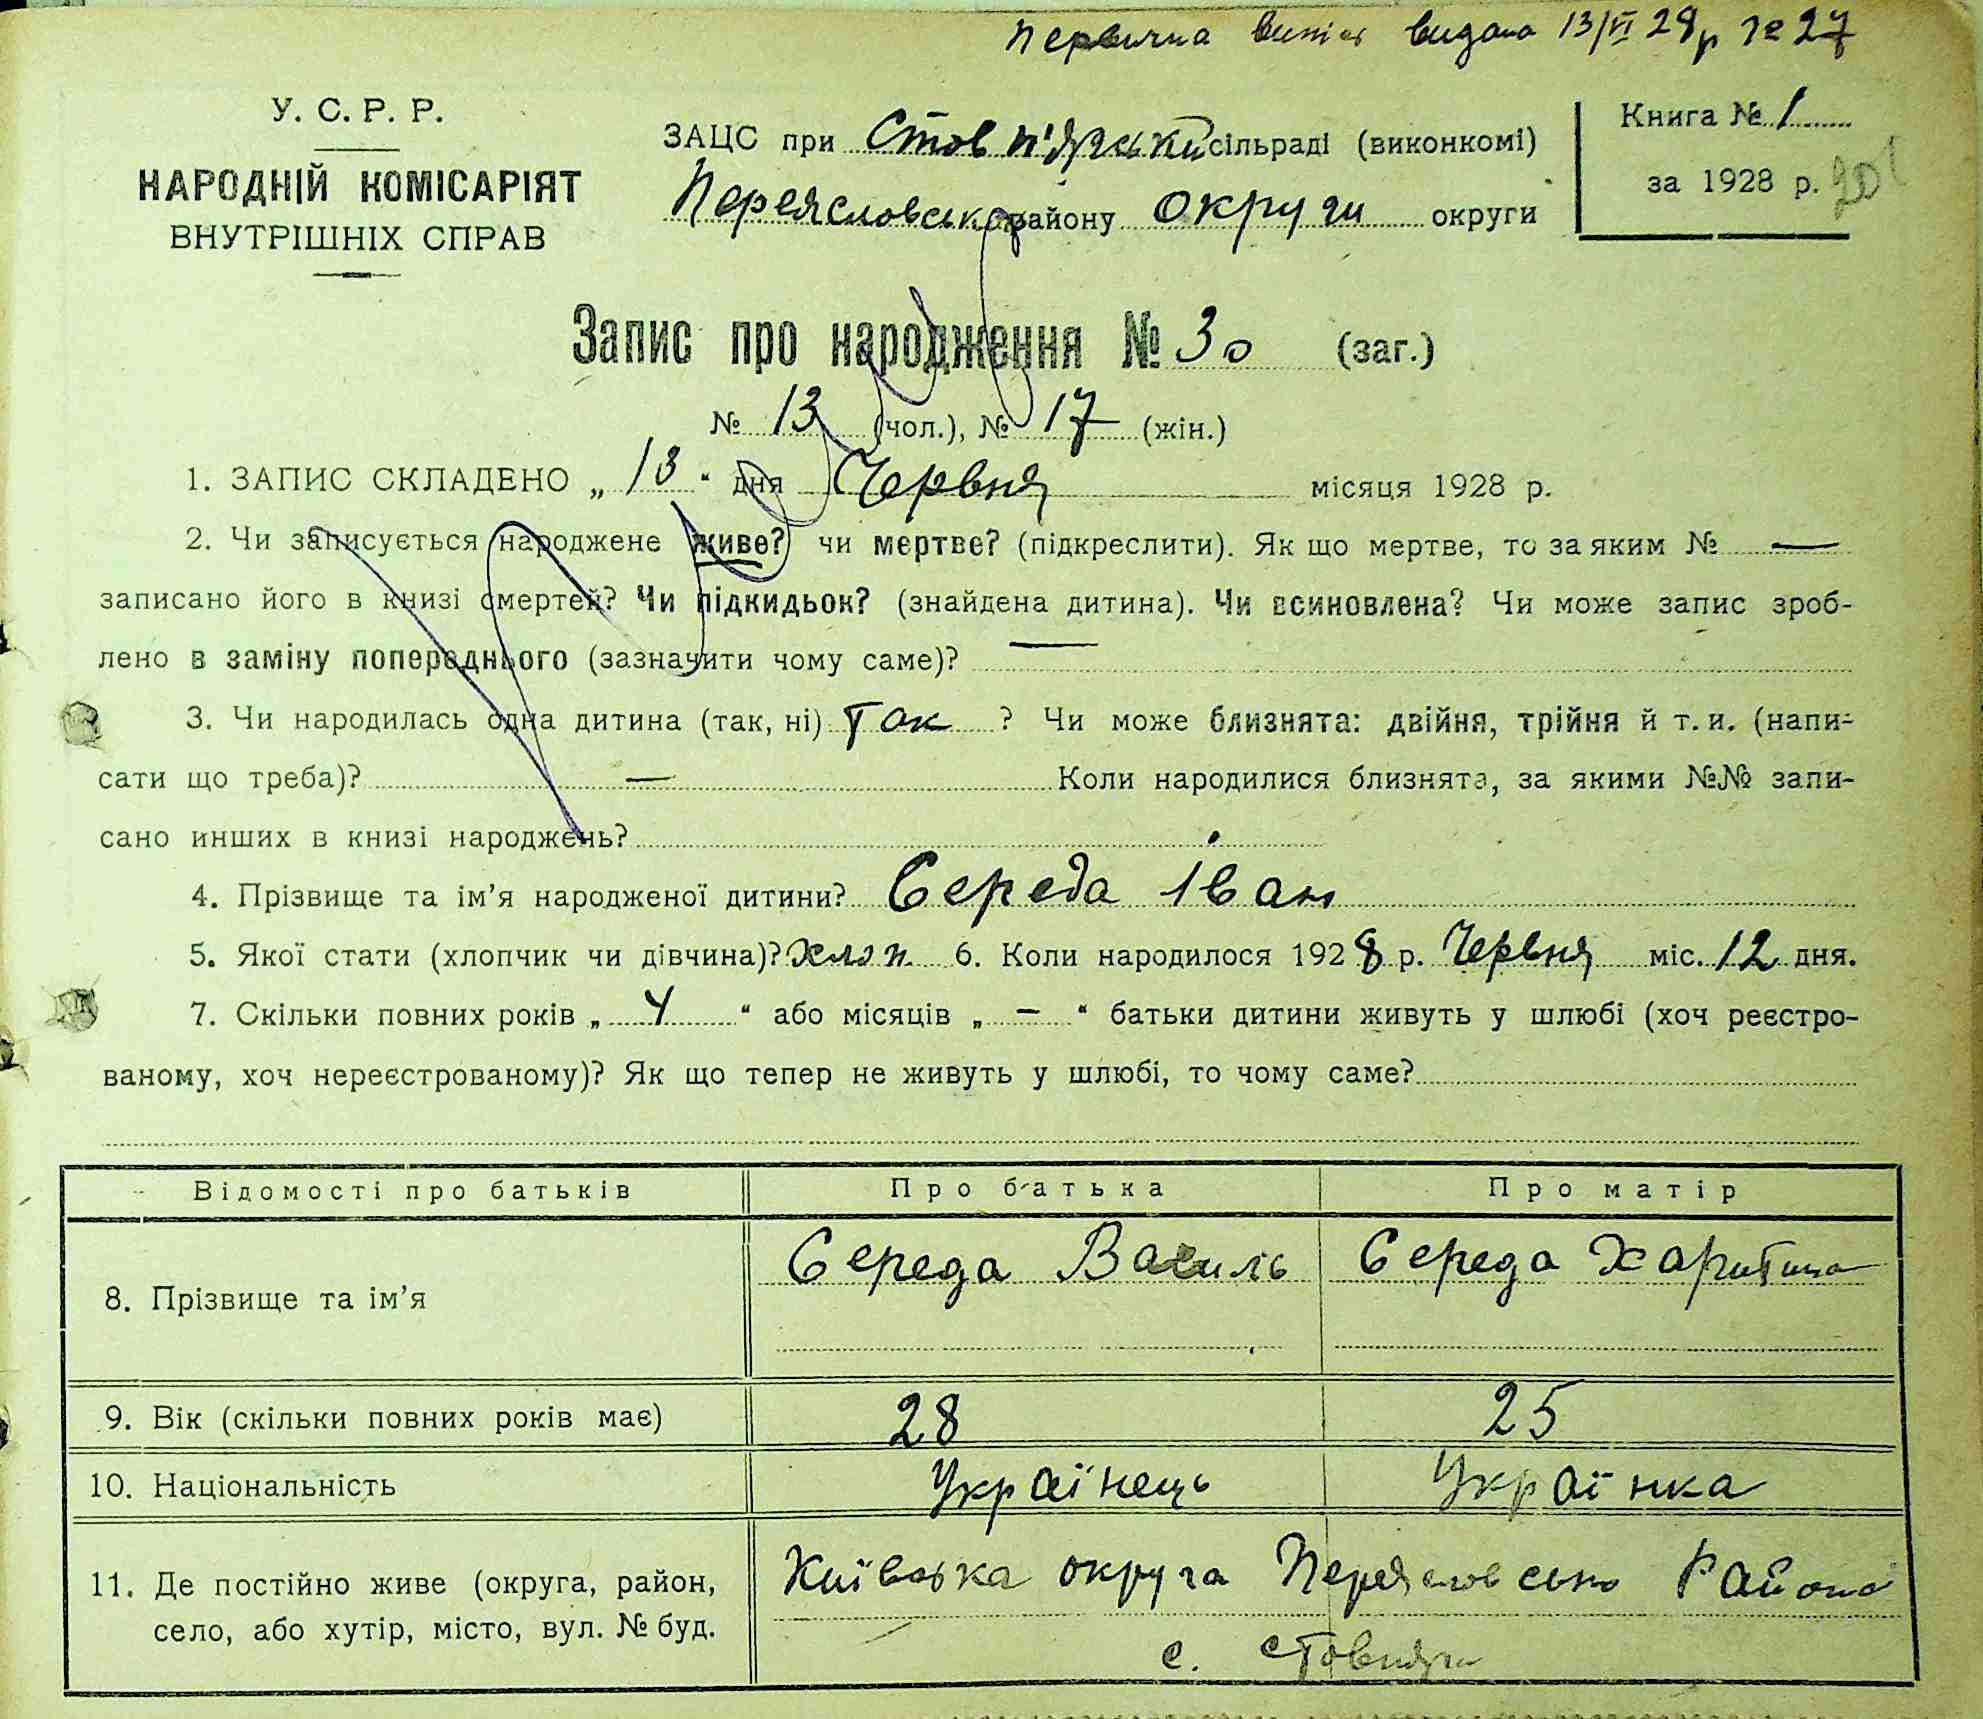 Первична випись видана 13/VI 28 р № 27
У. С. Р. Р.
НАРОДНІЙ КОМІСАРІЯТ
ВНУТРІШНІХ СПРАВ
ЗАЦС при Стовп'язький сільраді (виконкомі)
Переясловсько району округи округи
Книга № 1
за 1928 р.
Запис про народження № 30 (заг.)
№ 13 (чол.), № 17 (жін.)
1. ЗАПИС СКЛАДЕНО „ 13 “ дня Червня місяця 1928 р.
2. Чи записується народжене живе? чи мертве? (підкреслити). Як що мертве, то за яким № —
записано його в книзі смертей? Чи підкидьок? (знайдена дитина). Чи всиновлена? Чи може запис зроб-
лено в заміну попереднього (зазначити чому саме)? —
3. Чи народилась одна дитина (так, ні) Так ? Чи може близнята: двійня, трійня й т. и. (напи-
сати що треба)? — Коли народилися близнята, за якими №№ запи-
сано инших в книзі народжень?
4. Прізвище та ім’я народженої дитини? Середа Іван
5. Якої стати (хлопчик чи дівчина)? Хлоп. 6. Коли народилося 1928 р. Червня міс. 12 дня.
7. Скільки повних років „ 4 “ або місяців „ — “ батьки дитини живуть у шлюбі (хоч реєстро-
ваному, хоч нереєстрованому)? Як що тепер не живуть у шлюбі, то чому саме?
Відомості про батьків Про батька Про матір
8. Прізвище та ім’я Середа Василь Середа Харитина
9. Вік (скільки повних років має) 28 25
10. Національність Українець Українка
11. Де постійно живе (округа, район, Київська округа Переясловсько Района
село, або хутір, місто, вул. № буд. с. Стовпяги